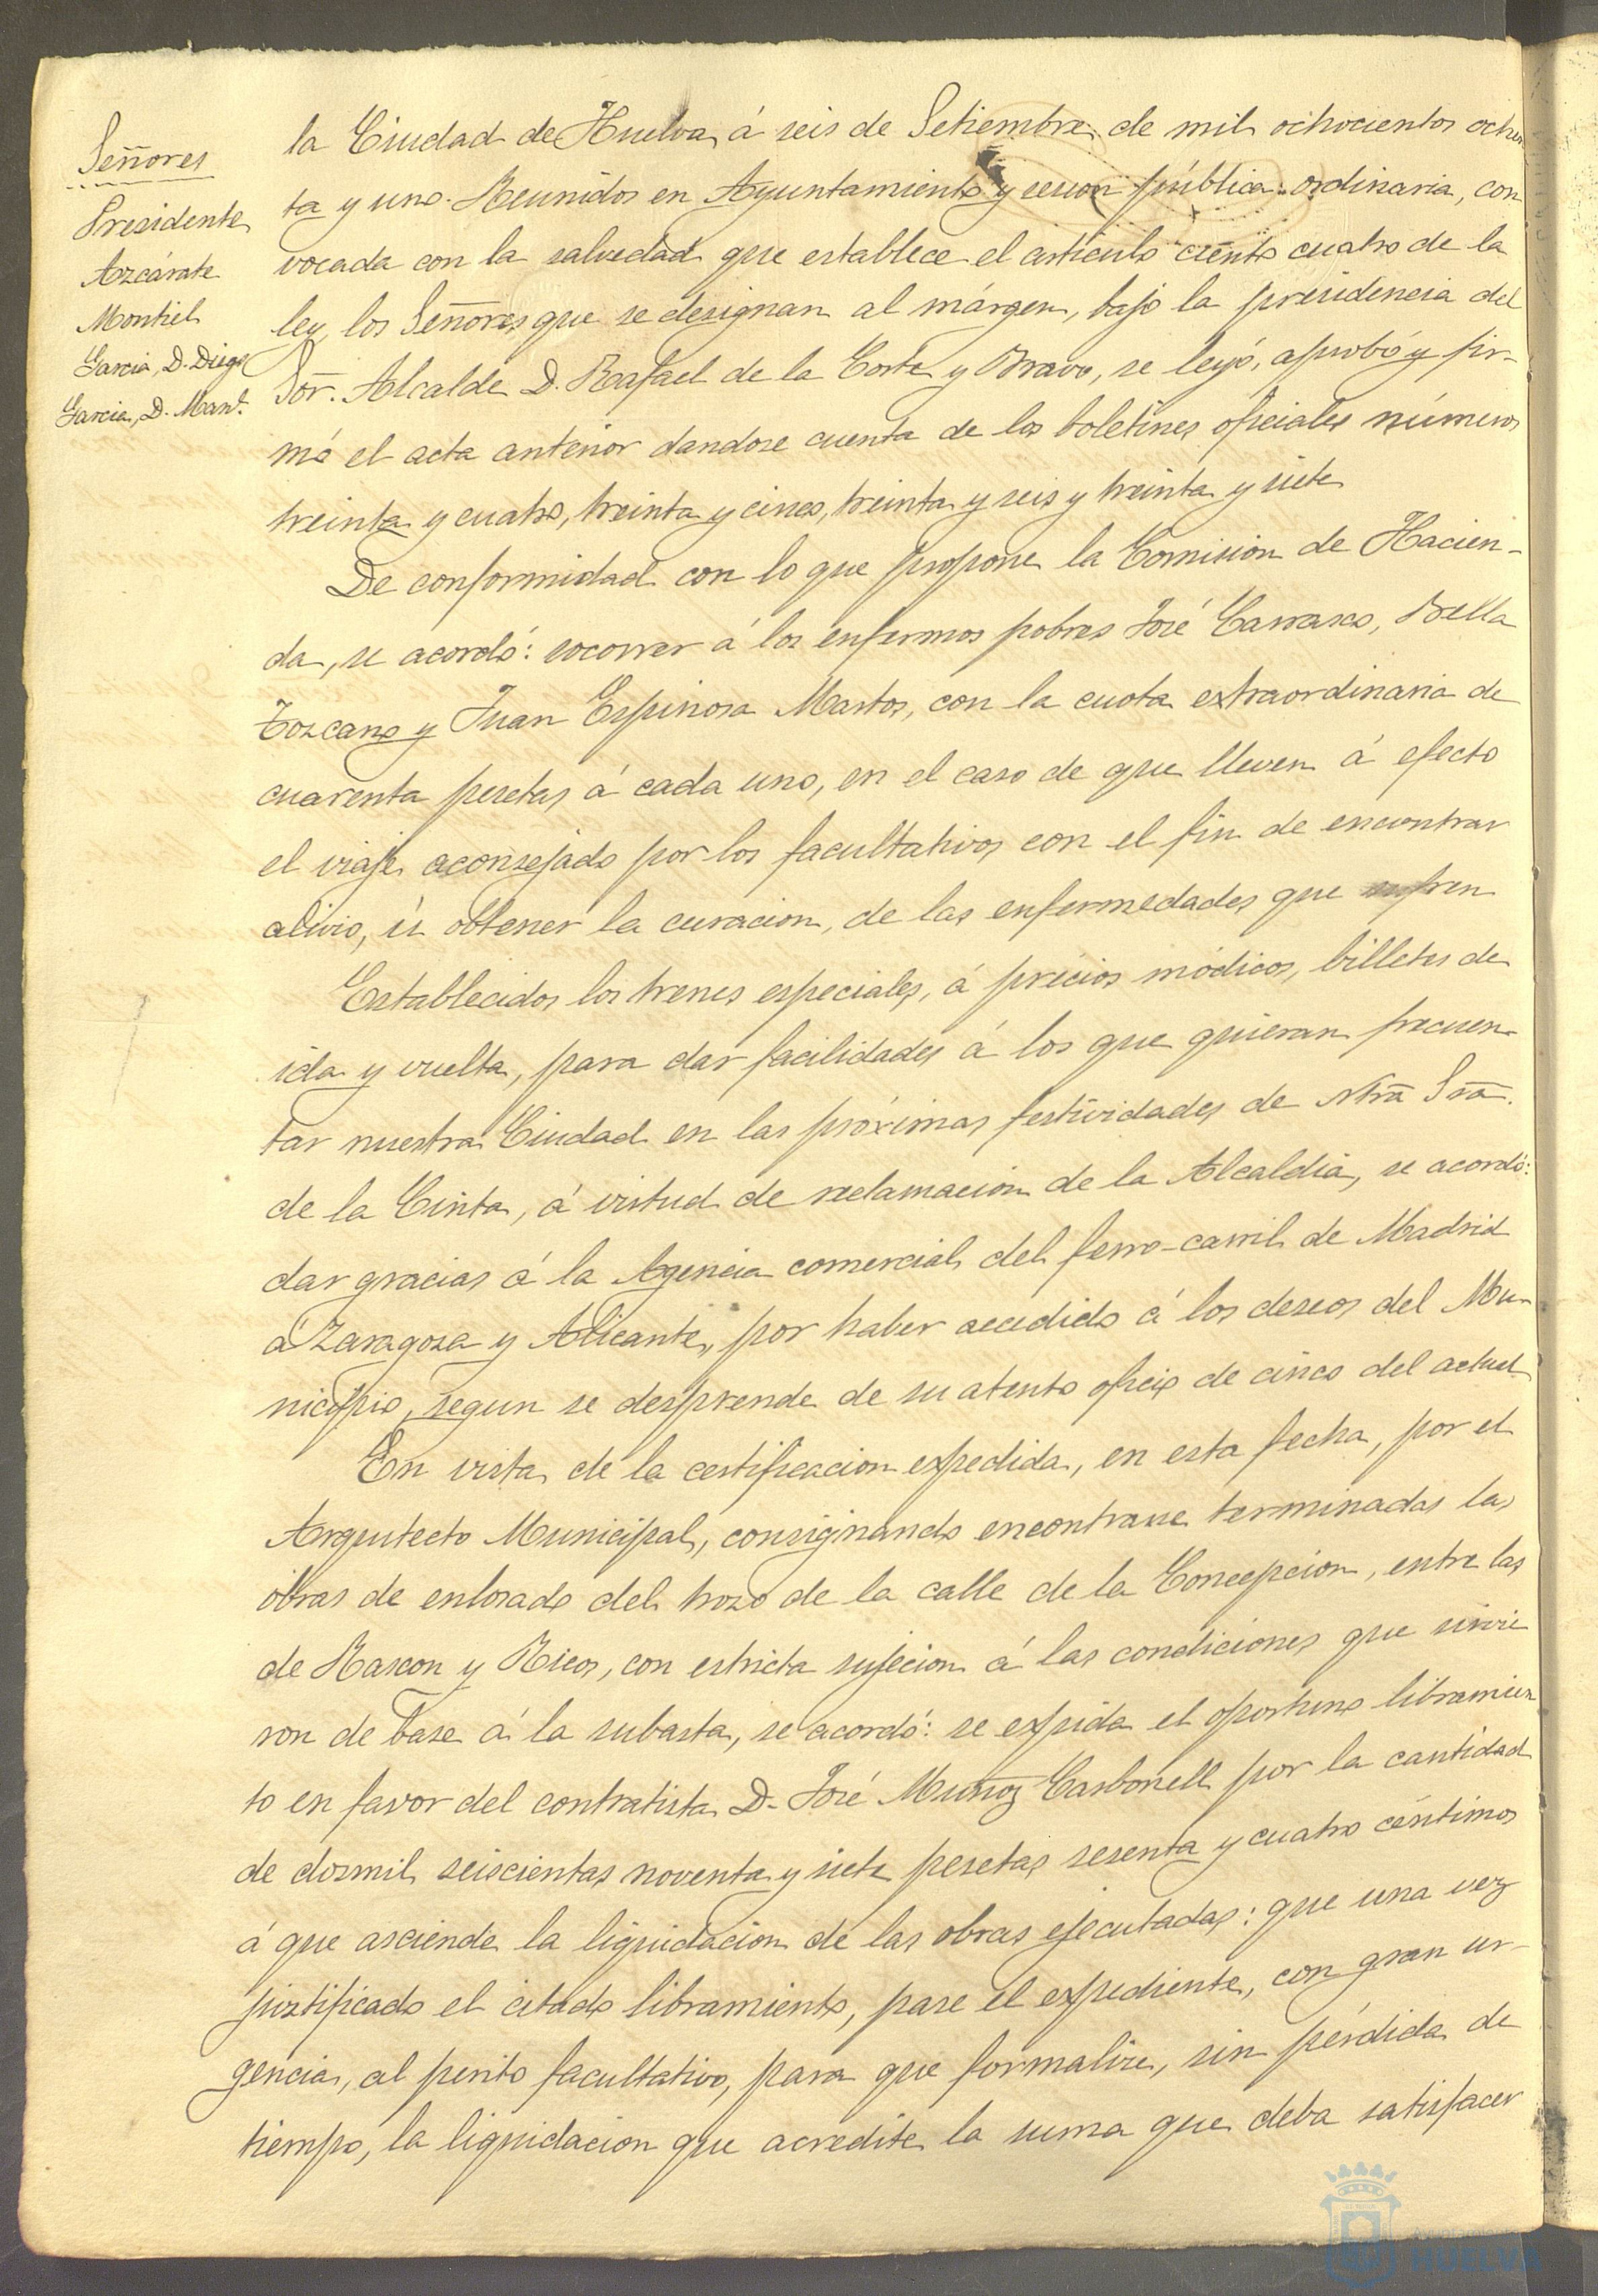 Señores
Presidente
Azcárate
Montiel
Garcia, D. Diego
Garcia, D. Man.l
la Ciudad de Huelva, á seis de Setiembre de mil ochocientos ochen
ta y uno. Reunidos en Ayuntamiento y sesion pública ordinaria, con
vocada con la salvedad que establece el artículo ciento cuatro de la
ley, los Señores que se designan al márgen, bajo la presidencia del
Sor. Alcalde D. Rafael de la Corte y Bravo, se leyó, aprobó y fir-
mó el acta anterior dandose cuenta de los boletines oficiales números
treinta y cuatro, treinta y cinco, treinta y seis y treinta y siete
De conformidad con lo que propone la Comision de Hacien-
da, se acordó: socorrer á los enfermos pobres José Carrasco, Bella
Tozcano y Juan Espinosa Martos, con la cuota extraordinaria de
cuarenta pesetas á cada uno, en el caso de que lleven á efecto
el viaje aconsejado por los facultativos con el fin de encontrar
alivio, ú obtener la curacion, de las enfermedades que sufren
Establecidos los trenes especiales, á precios módicos, billetes de
ida y vuelta, para dar facilidades á los que quieran frecuen-
tar nuestra Ciudad en las próximas festividades de Ntrã Srã.
de la Cinta, á virtud de reclamacion de la Alcaldia, se acordó:
dar gracias á la Agencia comercial del ferro-carril de Madrid
á Zaragoza y Alicante, por haber accedido á los deseos del Mu-
nicipio, segun se desprende de su atento oficio de cinco del actual
En vista de la certificacion expedida, en esta fecha, por el
Arquitecto Municipal, consignando encontrarse terminadas las
obras de enlosado del trozo de la calle de la Concepcion, entre las
de Rascon y Ricos, con estricta sujecion á las condiciones que sirvie
ron de base á la subasta, se acordó: se expida el oportuno libramien
to en favor del contratista D. José Muñoz Carbonell por la cantidad
de dosmil seiscientas noventa y siete pesetas sesenta y cuatro céntimos
á que asciende la liquidacion de las obras ejecutadas: que una vez
justificado el citado libramiento, pase el expediente, con gran ur-
gencia, al perito facultativo, para que formalize, sin pérdida de
tiempo, la liquidacion que acredite la suma que deba satisfacer
HUELVA